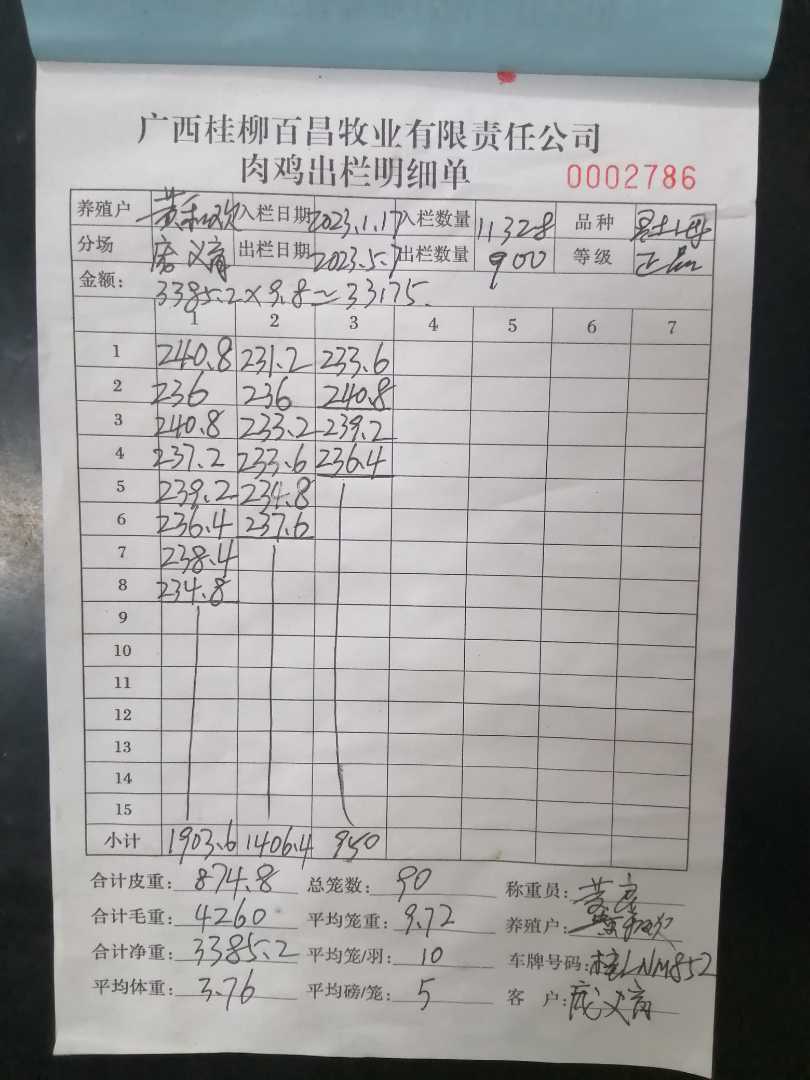 广西桂柳百昌牧业有限责任公司
肉鸡出栏明细单 0002786
养殖户 黄 欢 入栏日期 2023.1.17 入栏数量 11328 品种
分场 出栏日期 2023.5.7 出栏数量 900 等级 正品
金额: 3385.2×9.8=33175.
1 2 3 4 5 6 7
1 240.8 231.2 233.6
2 236 236 240.8
3 240.8 233.2 239.2
4 237.2 233.6 236.4
5 239.2 234.8
6 236.4 237.6
7 238.4
8 234.8
9
10
11
12
13
14
15
小计 1903.6 1406.4 950
合计皮重: 874.8 总笼数: 90 称重员: 黄
合计毛重: 4260 平均笼重: 9.72 养殖户:
合计净重: 3385.2 平均笼/羽: 10 车牌号码: 桂LNM852
平均体重: 3.76 平均磅/笼: 5 客 户: